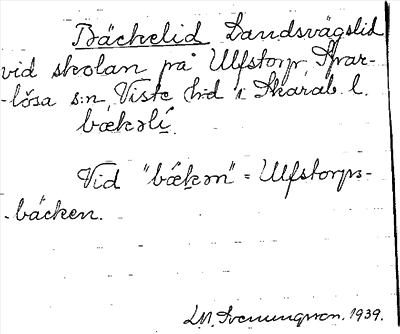 Bäckelid Landsvägslid
vid skolan på Ulfstorp, Spar-
-lösa s:n, Viste h:d i Skarab. l.
bœkəlí.
Vid "bœkən" = Ulfstorps-
-bäcken.
1939.